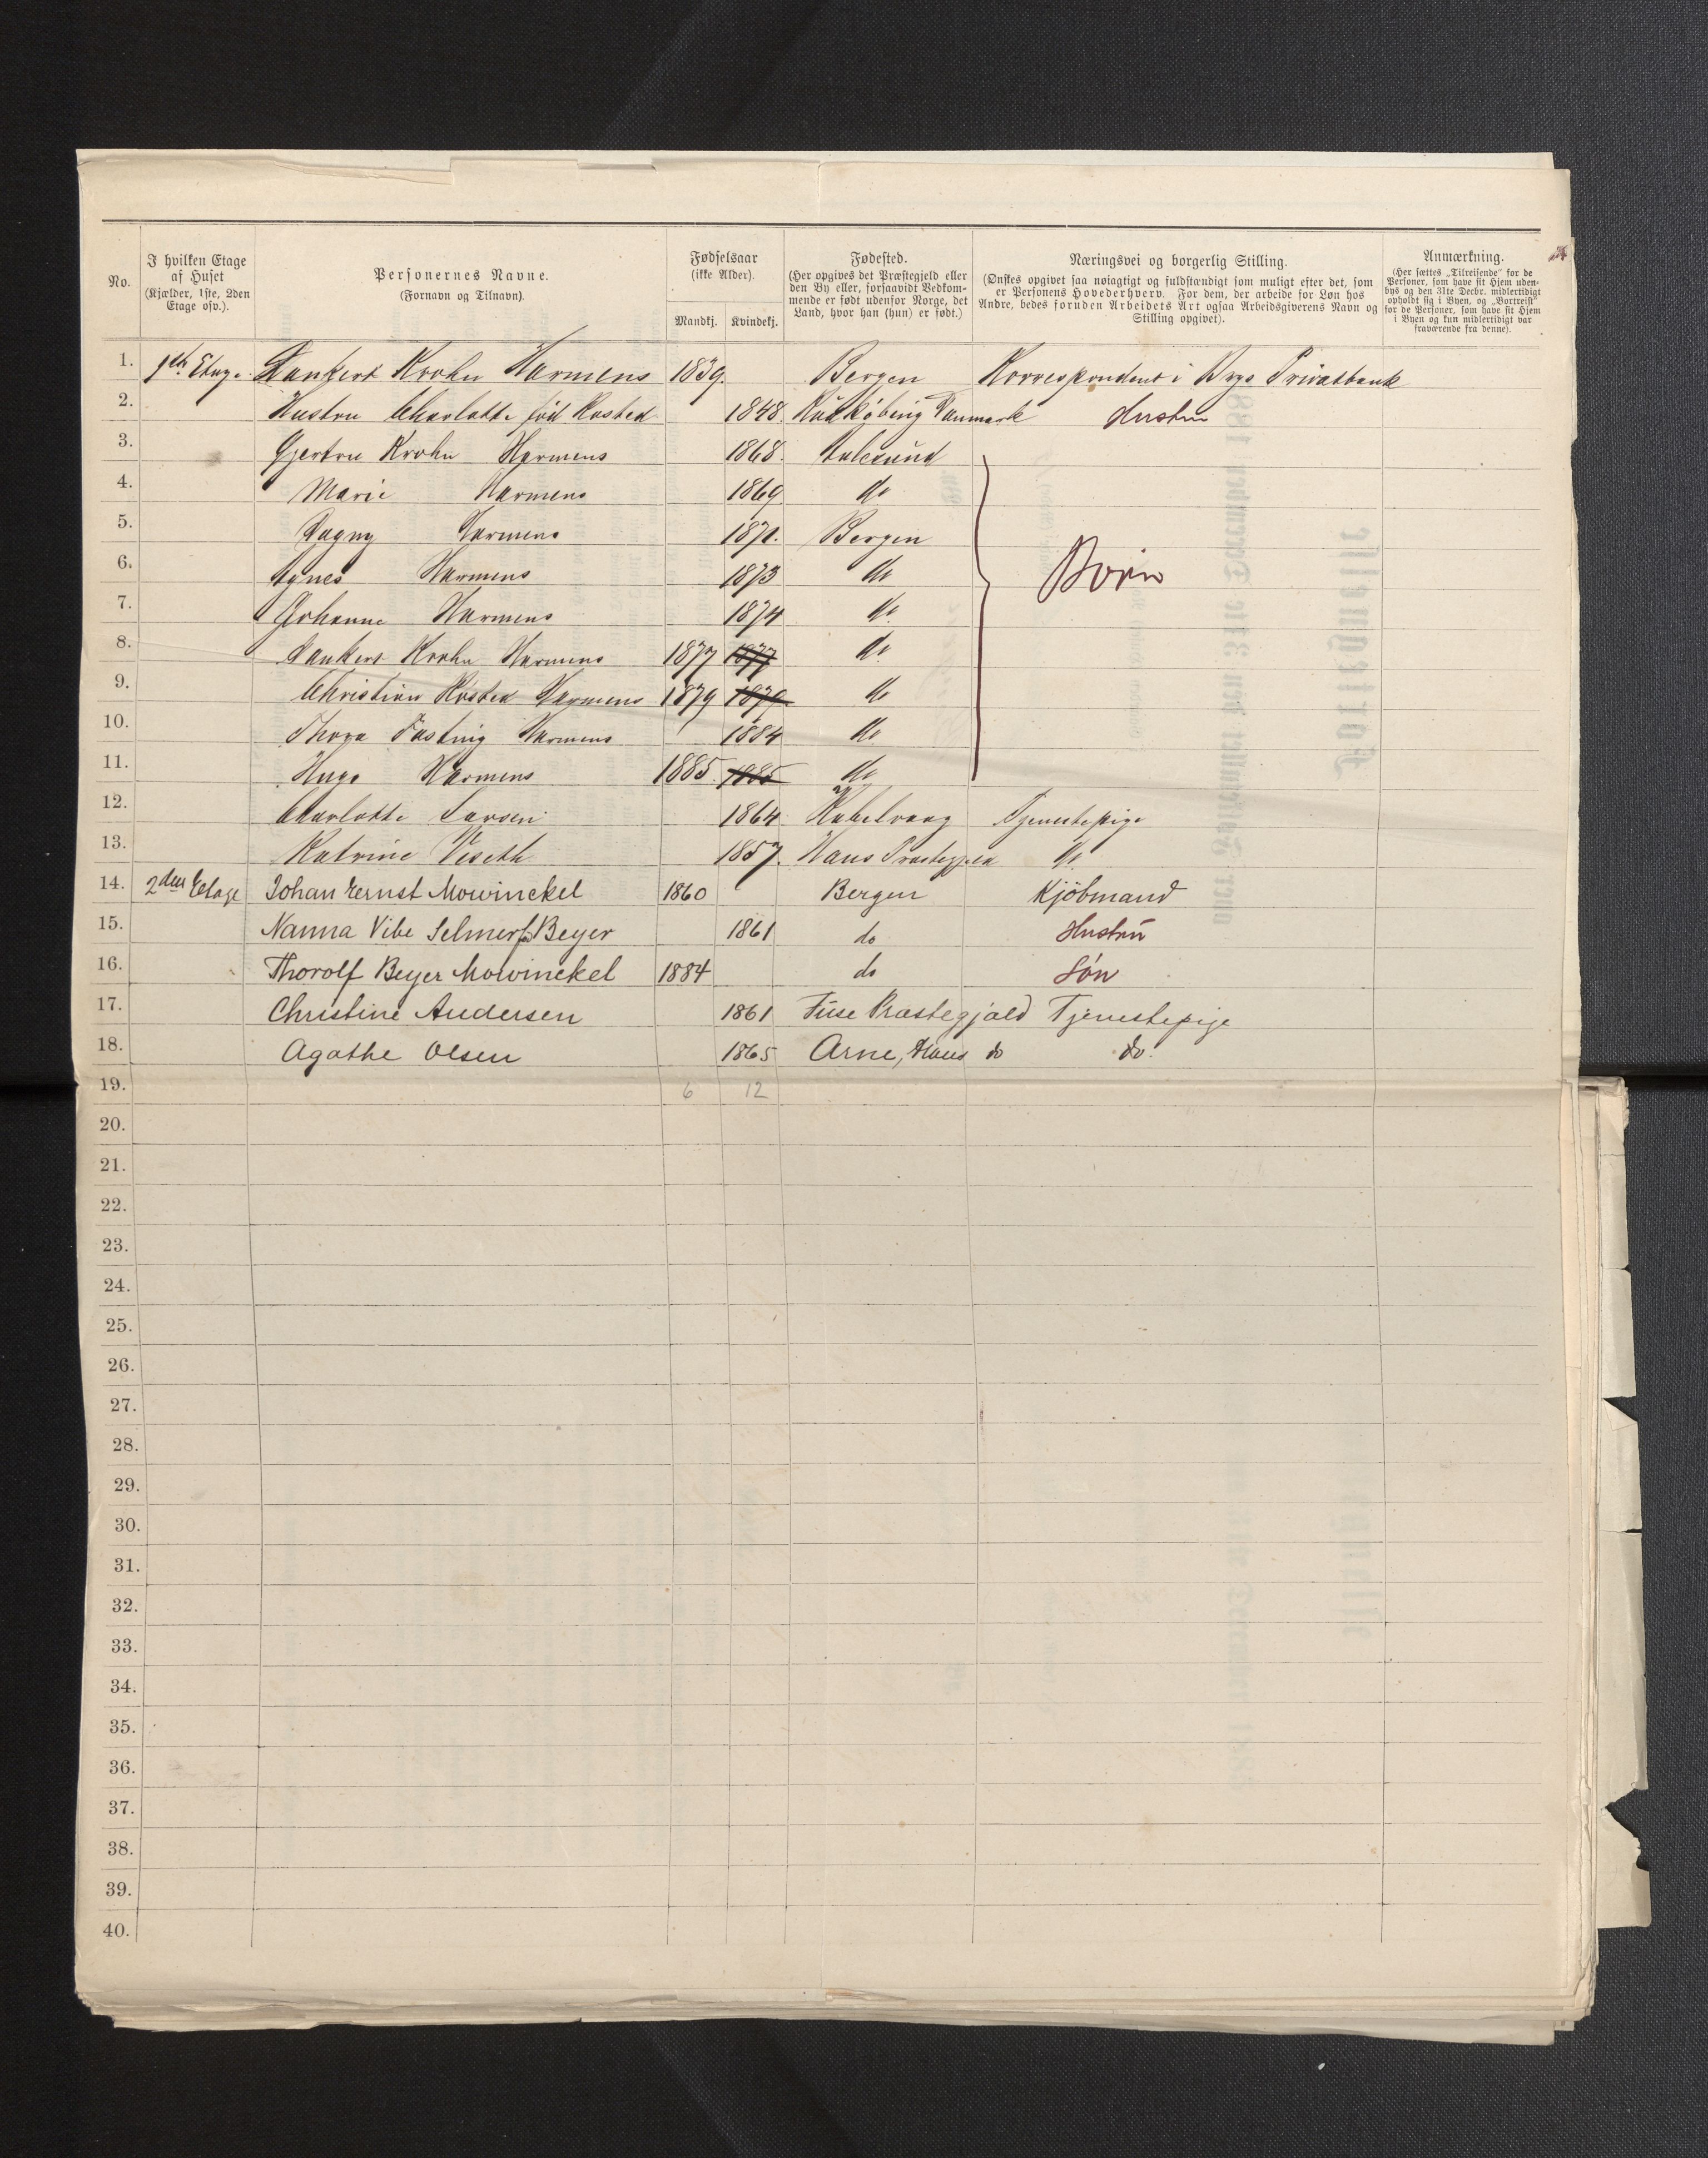 No. I hvilken Etage af Huset (Kjælder, 1ste, 2den Etage osv.). Personernes Navne. (Fornavn og Tilnavn). Fødselsaar (ikke Alder). Mandkj. Kvindekj. Fødested. (Her opgives det Præstegjeld eller den By eller, forsaavidt Vedkommende er født udenfor Norge, det Land, hvor han (hun) er født.) Næringsvei og borgerlig Stilling. (Ønskes opgivet saa nøiagtigt og fuldstændigt som muligt efter det, som er Personens Hovederhverv. For dem, der arbeide for Løn hos Andre, bedes foruden Arbeidets Art ogsaa Arbeidsgiverens Navn og Stilling opgivet). Anmærkning. (Her sættes „Tilreisende" for de Personer, som have sit Hjem udenbys og den 31te Decbr. midlertidigt opholdt sig i Byen, og „Bortreist" for de Personer, som have sit Hjem i Byen og kun midlertidigt var fraværende fra denne).
1. 1ste Etage Dankert Krohn Harmens 1839. Bergen Korrespondent i Brgs Privatbank
2. Hustru Charlotte fød Rosted 1848. Danmark Hustru
3. Gjertru Krohn Harmens 1868. Aalesund
4. Marie Harmens 1869 do
5. Dagny Harmens 1871. Bergen
6. Agnes Harmens 1873 do Børn
7. Johanne Harmens 1874 do
8. Dankert Krohn Harmens 1877 1877 do
9. Christian Rosted Harmens 1879 1879 do
10. Thora Fasting Harmens 1884 do
11. Hugo Harmens 1885. 1885 do
12. Charlotte Larsen 1864 Kabelvaag Tjenestepige
13. Katrine Veseth 1857. Haus Præstegjeld do
14. 2den Etage Johan Ernst Mowinckel 1860 Bergen Kjöbmand
15. Nanna Vibe Selmer f. Beyer 1861 do Hustru
16. Thorolf Beyer Mowinckel 1884 do Søn
17. Christine Andersen 1861 Fuse Præstegjæld Tjenestepige
18. Agathe Olsen 1865 Arne, Haus do do.
19. 6 12
20.
21.
22.
23.
24.
25.
26.
27.
28.
29.
30.
31.
32.
33.
34.
35.
36.
37.
38.
39.
40.